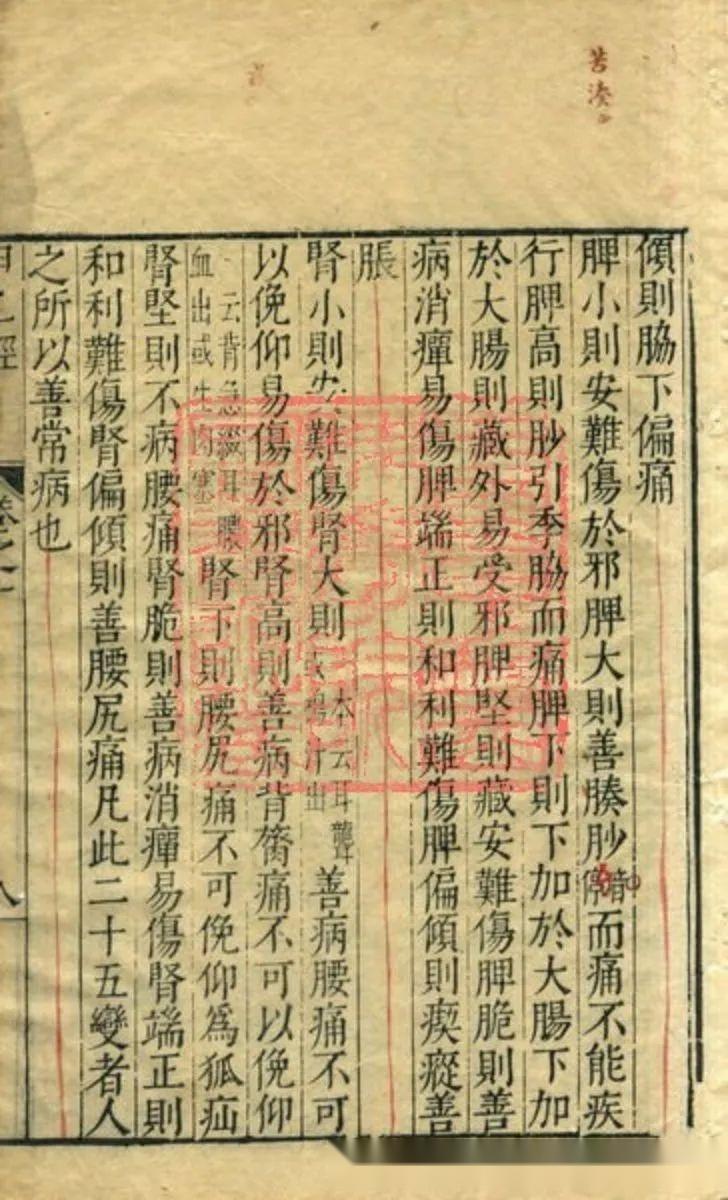 苦湊
傾則脇下偏痛
脾小則安難傷於邪脾大則善腠䏚音停而痛不能疾
行脾高則䏚引季脇而痛脾下則下加於大腸下加
於大腸則藏外易受邪脾堅則藏安難傷脾脆則善
病消癉易傷脾端正則和利難傷脾偏傾則瘈瘲善
脹
腎小則安難傷腎大則一本云耳聾或鳴汁出善病腰痛不可
以俛仰易傷於邪腎高則善病背膂痛不可以俛仰
一云背急綴耳膿血出或生肉塞腎下則腰尻痛不可俛仰為狐疝
腎堅則不病腰痛腎脆則善病消癉易傷腎端正則
和利難傷腎偏傾則善腰尻痛凡此二十五變者人
之所以善常病也
甲乙經 卷之一 八